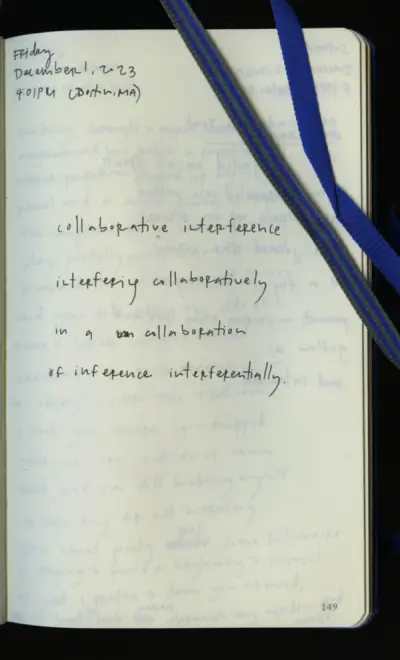 Friday
December 1, 2023
4:01PM (Boston, MA)
collaborative interference
interfering collaboratively
in a collaboration
of inference interferentially.
149